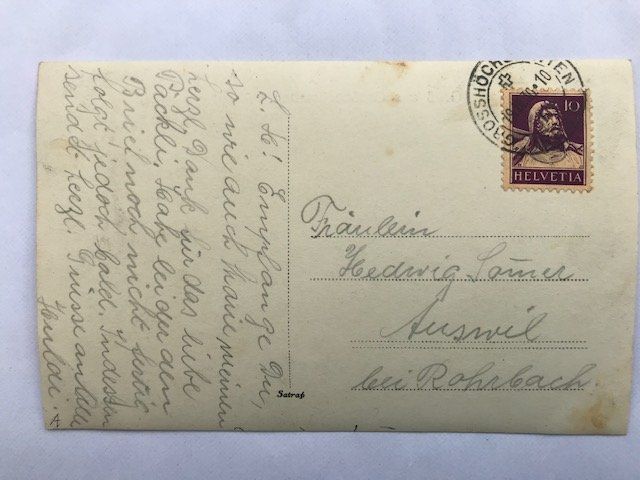 L. H! Empfange Du,
so wie auch Marie, meinen
herzl. Dank für das liebe
Päckli. Habe leider den
Brief noch nicht fertig
folgt jedoch bald. Indessen
send. herzl. Grüsse an alle
Hulda.
GROSSHÖCHSTETTEN
10
HELVETIA
Fräulein
Hedwig
Auswil
bei Rohrbach.
Satraß